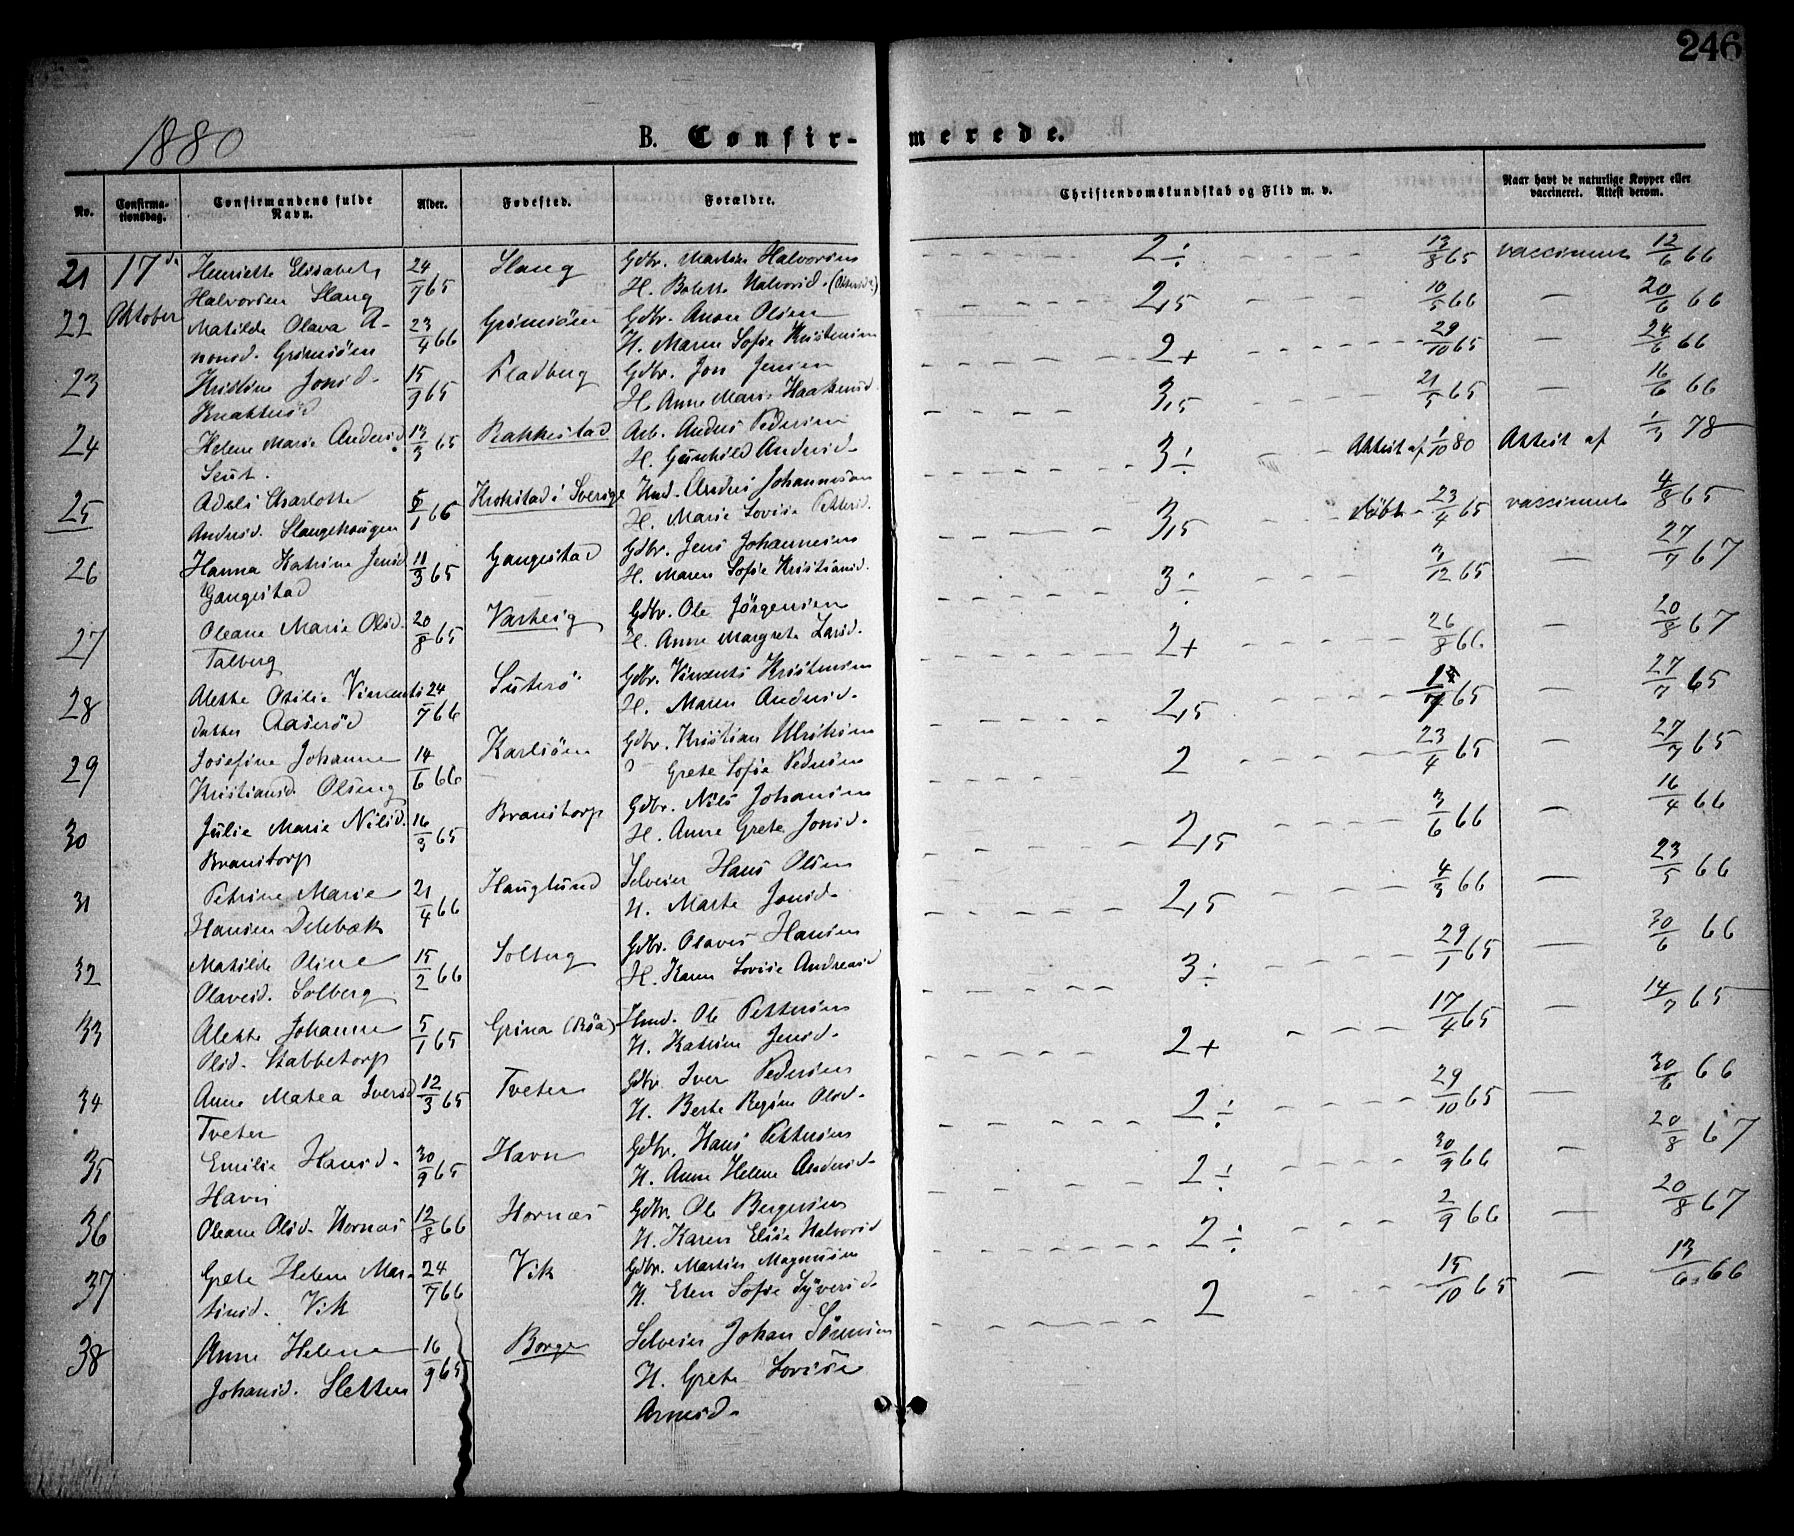 246
1880
B. Confirmerede.
No.
Confirmationsdag.
Confirmandens fulde Navn.
Alder.
Fødested.
Forældre.
Christendomskundskab og Flid m. v.
Naar havt de naturlige Kopper eller vaccineret. Attest derom.
21 17d. Henriette Elisabeth 24/7 65 Slang Gdbr. Martin Halvorsen 2 ÷ 13/8 65 vaccineret 12/6 66
Oktober Halvorsen Slang H. Bolette Halvorsd.
22 Matilde Olava A- 23/4 66 Grimsöen Gdbr. Anon Olsen 2,5 10/5 66 — 20/6 66
nonsd. Grimsöen H. Maren Sofie Kristensen
23 Kristine Jonsd. 15/9 65 Fladberg Gdbr. Jon Jensen 2+ 29/10 65 — 24/6 66
Knatteröd H. Anne Marie Haakensd.
24 Helene Marie Andersd. 13/3 65 Rakkestad Arb. Anders Pedersen 3,5 21/5 65 — 16/6 66
Seut. H. Gunhild Andersd.
25 Adele Charlotte 66 Krokstad i Sverige Anders Johannesen 3 ÷ Attest af 1/10 80 Attest af 1/3 78
Andersd. Slangehaugen H. Marie Lovise Pettersd.
26 Hanna Katrine Jensd. 11/3 65 Gangestad Gdbr. Jens Johannesen 3,5 döbt 23/4 65 vaccineret 4/8 65
Gangestad H. Maren Sofie Kristiansd.
27 Oleane Marie Olsd. 20/8 65 Varteig Gdbr. Ole Jörgensen 3 ÷ 3/12 65 — 27/7 67
Talberg H. Anne Margrete Larsd.
28 Alette Otilie Vincents 24/7 66 Suterö Gdbr. Vincents Kristensen 2+ 26/8 66 — 20/8 67
datter Aaseröd H. Maren Andersd.
29 Josefine Johanne 14/6 66 Karlsöen Gdbr. Kristian Ulriksen 2,5 65 — 27/7 65
Kristiansd. Olseng Grete Sofie Pedersen
30 Julie Marie Nilsd. 16/3 65 Branstorp Gdbr. Nils Johansen 2 23/4 65 — 27/7 65
Branstorp H. Anne Grete Jonsd.
31 Petrine Marie 21/4 66 Hauglund Selveier Hans Olsen 2,5 3/6 66 — 16/4 66
Hansen Delebæk H. Marte Jonsd.
32 Matilde Oline 15/2 66 Solberg Gdbr. Olaves Hansen 2,5 4/3 66 — 23/5 66
Olavesd. Solberg H. Karen Lovise Andreasd
33 Alette Johanne 5/1 65 Grina (Röa) Hmd. Ole Pettersen 3 ÷ 29/1 65 — 30/6 66
Olsd. Stabbetorp H. Katrine Jensd.
34 Anne Matea Iversd 12/3 65 Tveter Gdbr. Iver Pedersen 2+ 17/4 65 — 14/7 65
Tveter H. Berte Regine Olsd.
35 Emilie Hansd. 30/9 65 Havn Gdbr. Hans Pettersen 2 ÷ 29/10 65 — 30/6 66
Havn H. Anne Helene Andersd.
36 Oleane Olsd. Hornæs 12/8 66 Hornæs Gdbr. Ole Bergersen 2 ÷ 30/9 66 — 20/8 67
H. Karen Elise Halvorsd
37 Grete Helene Mar- 24/7 66 Vik Gdbr. Martin Magnusen 2 ÷ 2/9 66 — 20/8 67
tinsd. Vik H. Elen Sofie Syversd.
38 Anne Helene 16/9 65 Borge Selveier Johan Sörensen 2 15/10 65 — 13/6 66
Johansd. Sletten H. Grete Lovise
Arnesd.